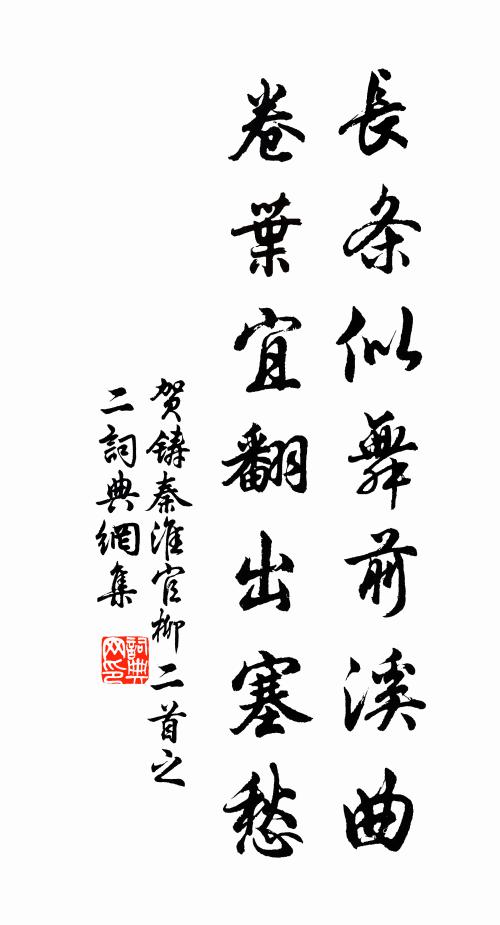 長条似舞前溪曲
卷葉宜翻出塞愁
贺鑄秦淮官柳二首之
二詞典網集
詞典
网印